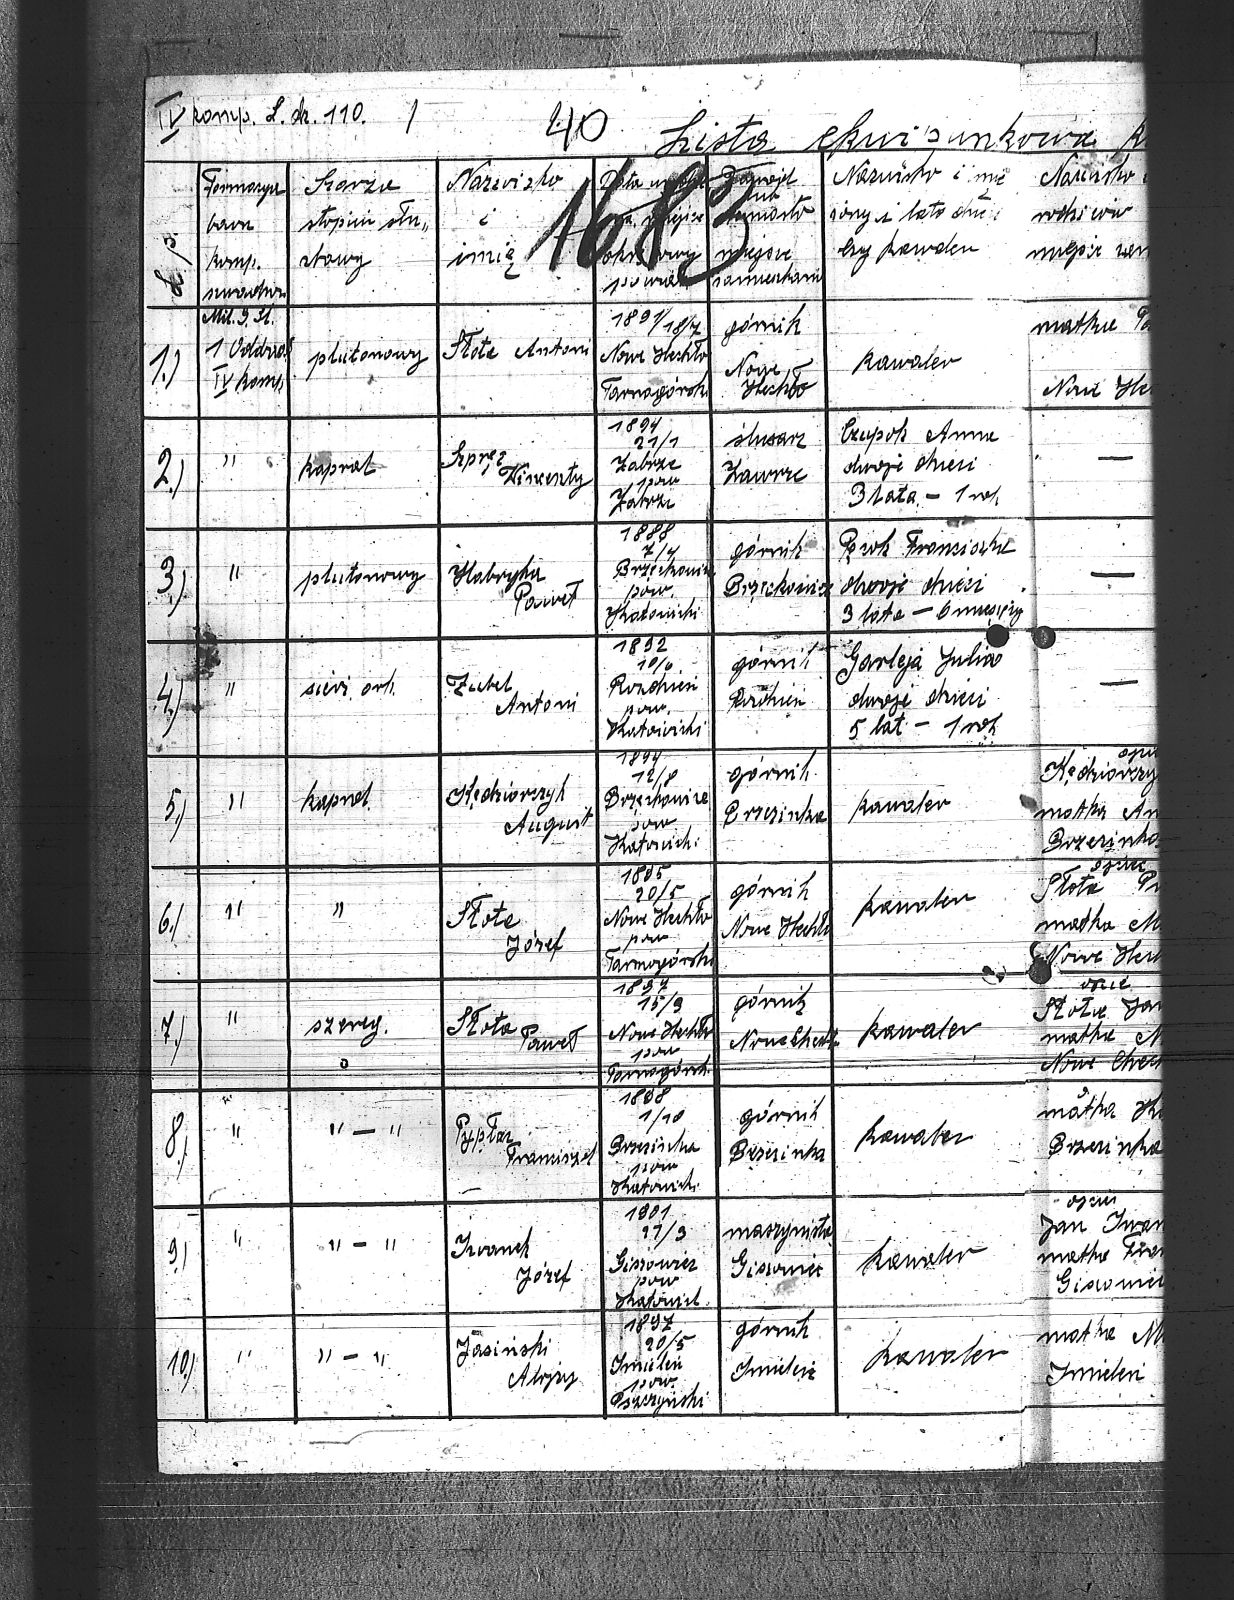 IV komp. L. dz. 110. /
40
Lista ekwipunkowa
1683
L. p.
Formacya
baon
komp.
Szarża
stopień słu„
żbowy
Nazwisko
i
imię
Data
powiat
Zawód
lub
miejsce
zamieszkania
Nazwisko i imię
żony i lata dzieci
czy kawaler
Nazwisko
rodziców
miejsce zam
1.)
1 Oddział
IV komp.
plutonowy
Słota Antoni
1891/18/7
Nowe Hechło
Tarnogórski
górnik
Nowe
Hechło
kawaler
matka
Nowe
2.)
"
kapral
Szpręz
Wincenty
1894
21/1
Zabrze
pow
Zabrze
ślusarz
Zawrze
Czapok Anna
dwoje dzieci
3 lata – 1 rok
—
3.)
"
plutonowy
Habryka
Paweł
1888
7/4
Brzęckowice
pow.
Katowicki
górnik
Brzęckowice
Franciszka
dwoje dzieci
3 lata – 6 miesięcy
—
4.)
"
Antoni
1892
10/6
Rozdzień
pow.
Katowicki
górnik
Rozdzień
Garleja Julia
dwoje dzieci
5 lat – 1 rok
—
5.)
"
kapral
Kędziorczyk
August
1894
12/8
Brzęckowice
pow
Katowicki
górnik
Brzezinka
kawaler
matka An
Brzezinka
6.)
"
"
Słota
Józef
1895
20/5
Nowe Hechło
pow
Tarnogórski
górnik
Nowe Hechło
kawaler
ojciec
Słota
matka M
Nowe
7.)
"
szereg.
Słota
Paweł
1897
15/9
Nowe Hechło
pow
Tarnogórski
górnik
Nowe Chechło
kawaler
ojciec
Słota Jan
matka M
Nowe Chec
8.)
"
" – "
Pypłacz
Franciszek
1898
1/10
Brzezinka
pow
Katowicki
górnik
Brzezinka
kawaler
matka
Brzezinka
9.)
"
" – "
Iwanek
Józef
1901
27/3
Giszowiec
pow
Katowick.
maszynista
Giszowiec
kawaler
ojciec
Jan Iwan
matka Fran
Giszowiec
10.)
"
" – "
Jasiński
Alojzy
1897
20/5
Imieleń
pow.
Pszczyński
górnik
Imieleń
kawaler
matka M
Imieleń